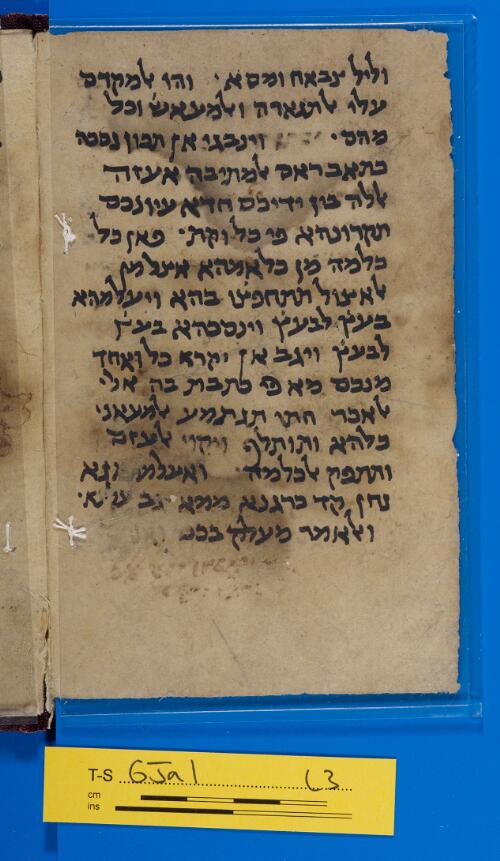 וליל צבאח ומסא׳ והו אלמקדם
עלי אלתגארה ואלמעאש וכל
מהם׳ וינבגי אן תכון נסכה
כתאב ראס אלמתיבה אעזה
אללה בין ידיכם חדא עיונכם
תקרונהא פי כל וקת׳ פאן כל
כלמה מן כלאמהא אצל מן
אלאצול תתחפצו בהא ויעלמהא
בעץ לבעץ וינסכהא בעץ
לבעץ ויגב אן יקרא כל ואחד
מנכם מא כתבת בה אלי
אלאכר חתי תגתמע אלמעאני
כלהא ותותלף ויקוי אלעזם
ותתפק אלכלמה׳ ואעלמ
נחן קד כרגנא ממא יגב
ואלאומר מעלק בכם
T-S G Ja 1 L3
cm
ins